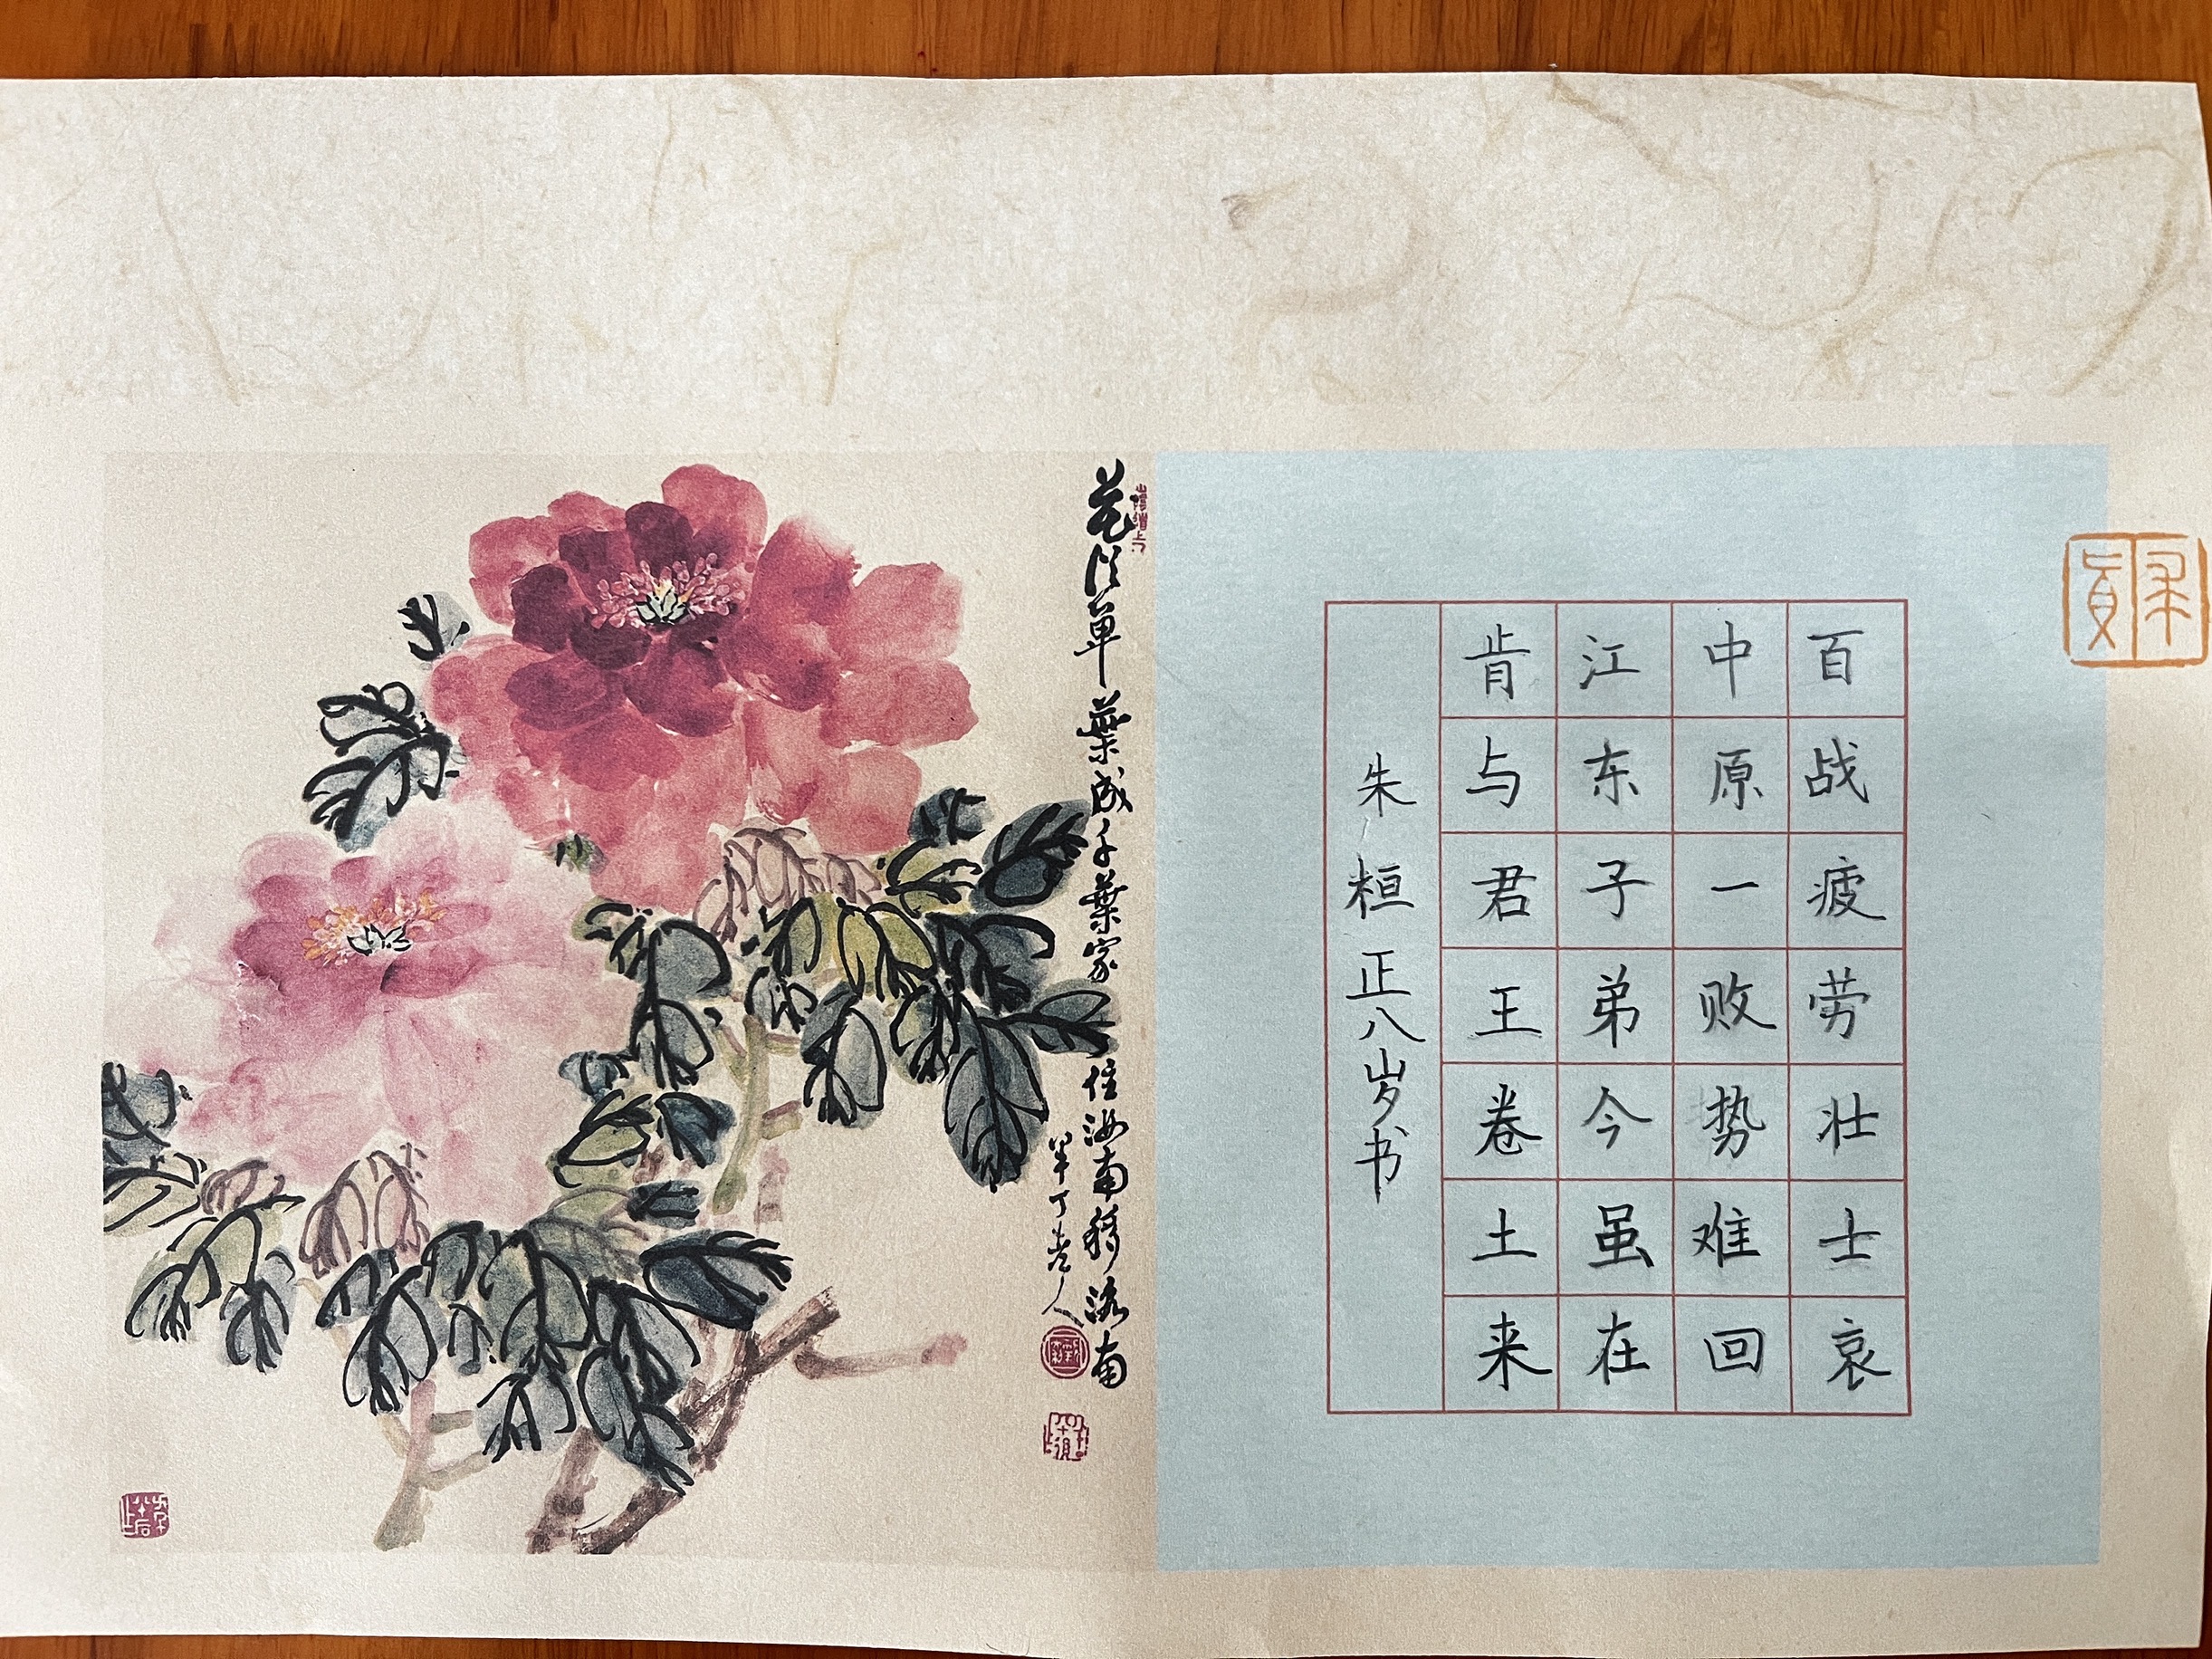 百战疲劳壮士哀
中原一败势难回
江东子弟今虽在
肯与君王卷土来
朱桓正八岁书
花從單葉成千葉家住汝南疑洛南
半丁老人